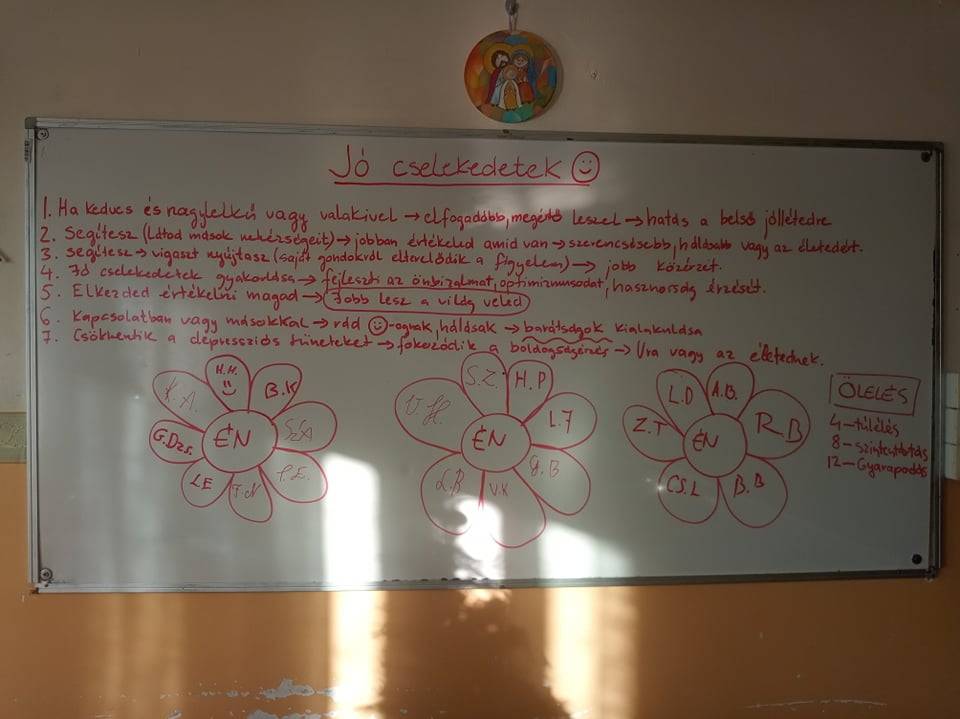 Jó cselekedetek
1. Ha kedves és nagylelkű vagy valakivel → elfogadóbb, megértő leszel → hatás a belső jóllétedre
2. Segítesz (látod mások nehézségeit) → jobban értékeled amid van → szerencsésebb, hálásabb vagy az életedért.
3. Segítesz → vigaszt nyújtasz (saját gondokról elterelődik a figyelem) → jobb közérzet.
4. Jó cselekedetek gyakorlása → fejleszti az önbizalmat, optimizmusodat, hasznosság érzését.
5. Elkezded értékelni magad → Jobb lesz a világ veled
6. Kapcsolatban vagy másokkal → rád ☺-ognak, hálásak → barátságok kialakulása
7. Csökkentik a depressziós tüneteket → fokozódik a boldogságérzés → Ura vagy az életednek.
H.H.
B.K
K.A.
ÉN
SzA
G.Dzs.
LE
T.N
S.Z.
H.P
V.H.
ÉN
L.J
G.B
L.B
V.K
L.D
A.B.
Z.T
ÉN
RB
CS.L
B.B
ÖLELÉS
4 – túlélés
8 – szintentartás
12 – Gyarapodás